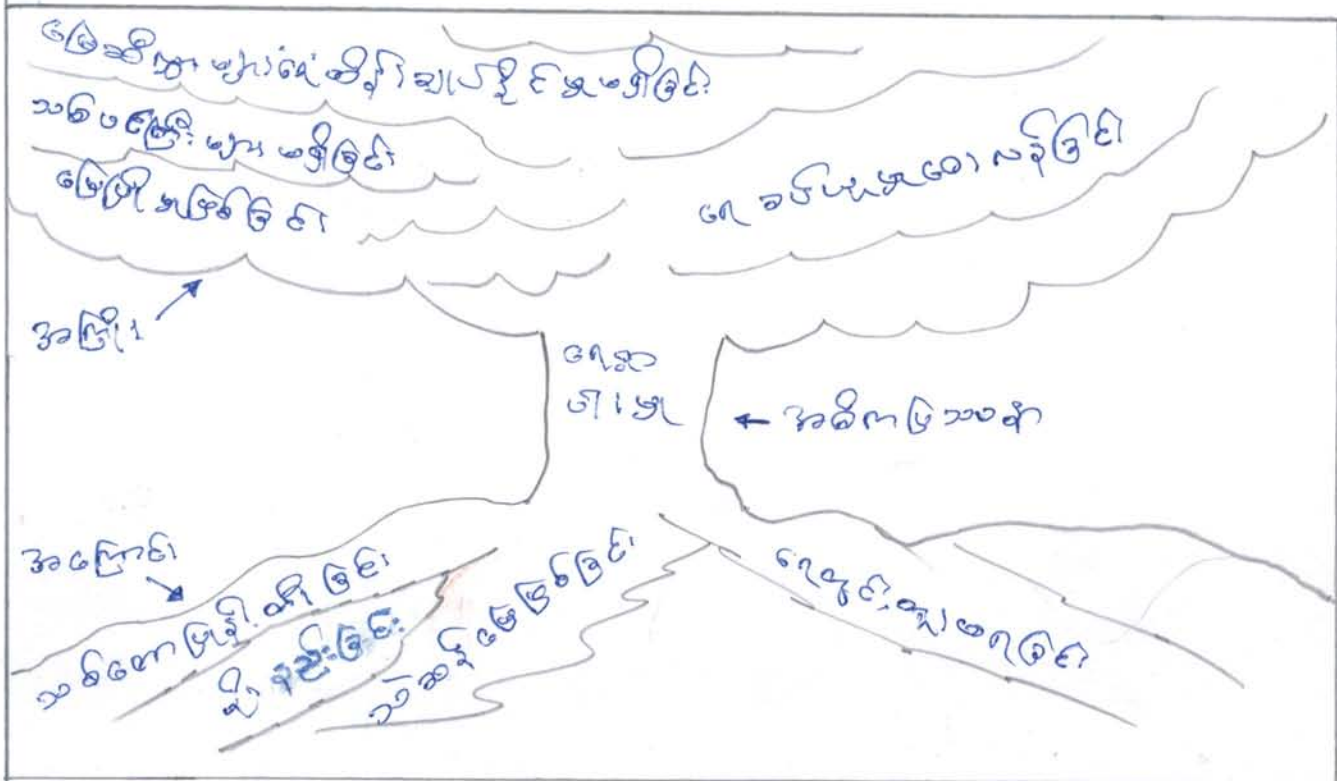 မြေဆီလွှာများမှရေထိန်းချုပ်နိုင်မှုမရှိခြင်း
သစ်ပင်ကြီးများ မရှိခြင်း
မြေပြိုမှုဖြစ်ခြင်း
ရေ ခပ်ယူမှုဝေးလန်ခြင်း
အကျိုး
ရေရှား
ပါးမှု
အဓိကပြဿနာ
အကြောင်း
သစ်တောပြုန်းတီးခြင်း
မိုး နည်းခြင်း
သဲဆန်မြေဖြစ်ခြင်း
ရေတွင်းတူးမရခြင်း